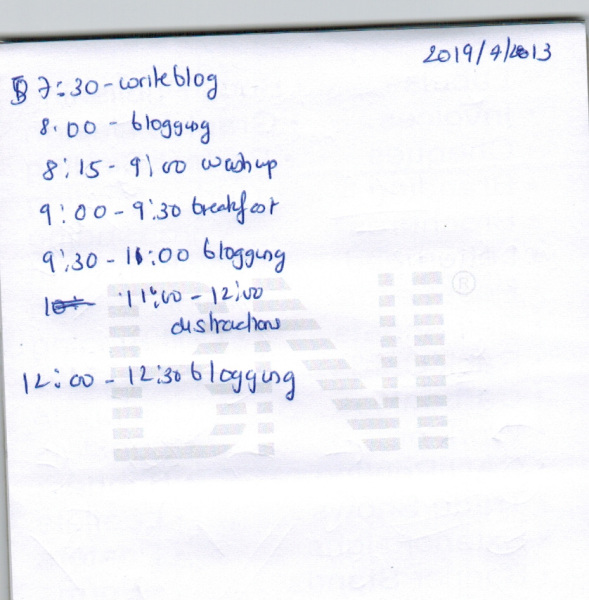 2019/4/2013
7:30 - write blog
8.00 - blogging
8:15 - 9:00 wash up
9:00 - 9:30 breakfast
9:30 - 11:00 blogging
11:00 - 12:00
distractions
12:00 - 12:30 blogging
BNI ®